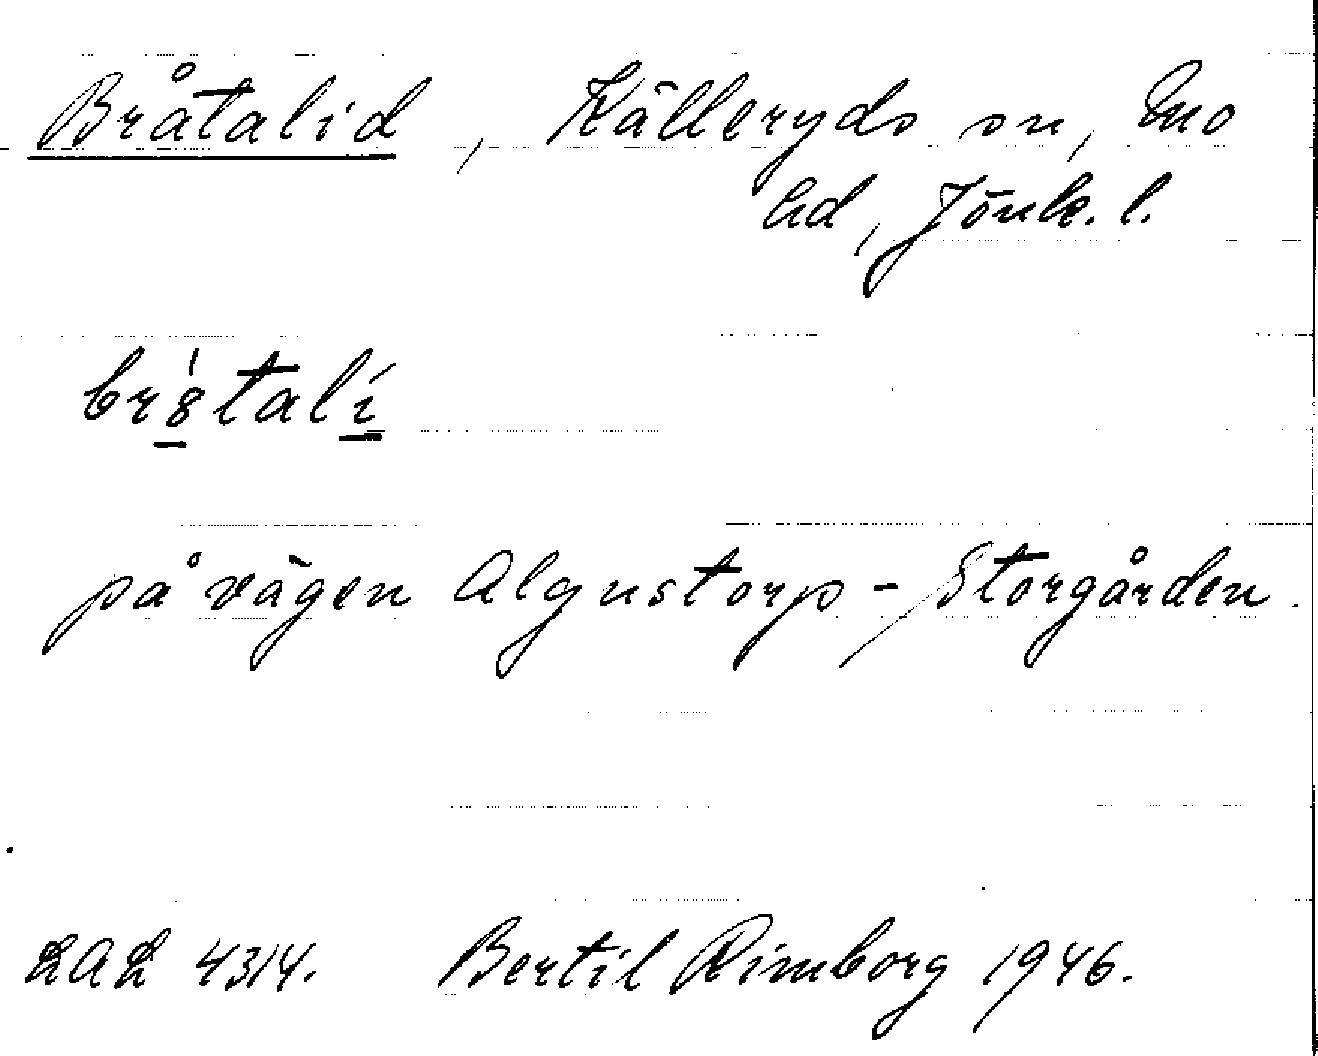 Bråtalid, Källeryds sn, Mo
hd, Jönk. l.
br8̀talí
på vägen Algustorp - Storgården.
LAL 4314. Bertil Rimborg 1946.